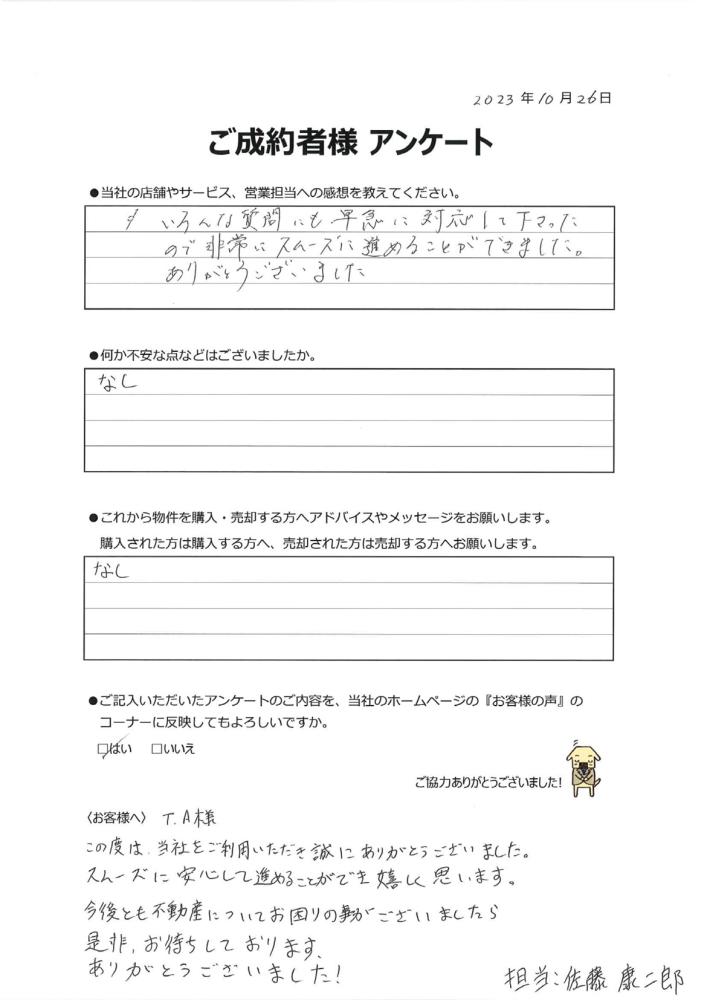 2023年10月26日
ご成約者様 アンケート
●当社の店舗やサービス、営業担当への感想を教えてください。
いろんな質問にも早急に対応して下さった
ので非常にスムーズに進めることができました。
ありがとうございました
●何か不安な点などはございましたか。
なし
●これから物件を購入・売却する方へアドバイスやメッセージをお願いします。
購入された方は購入する方へ、売却された方は売却する方へお願いします。
なし
●ご記入いただいたアンケートのご内容を、当社のホームページの『お客様の声』の
コーナーに反映してもよろしいですか。
☑はい □いいえ
ご協力ありがとうございました!
〈お客様へ〉 T.A様
この度は、当社をご利用いただき誠にありがとうございました。
スムーズに安心して進めることができ嬉しく思います。
今後とも不動産についてお困りの事がございましたら
是非、お待ちしております。
ありがとうございました!
担当:佐藤 康二郎